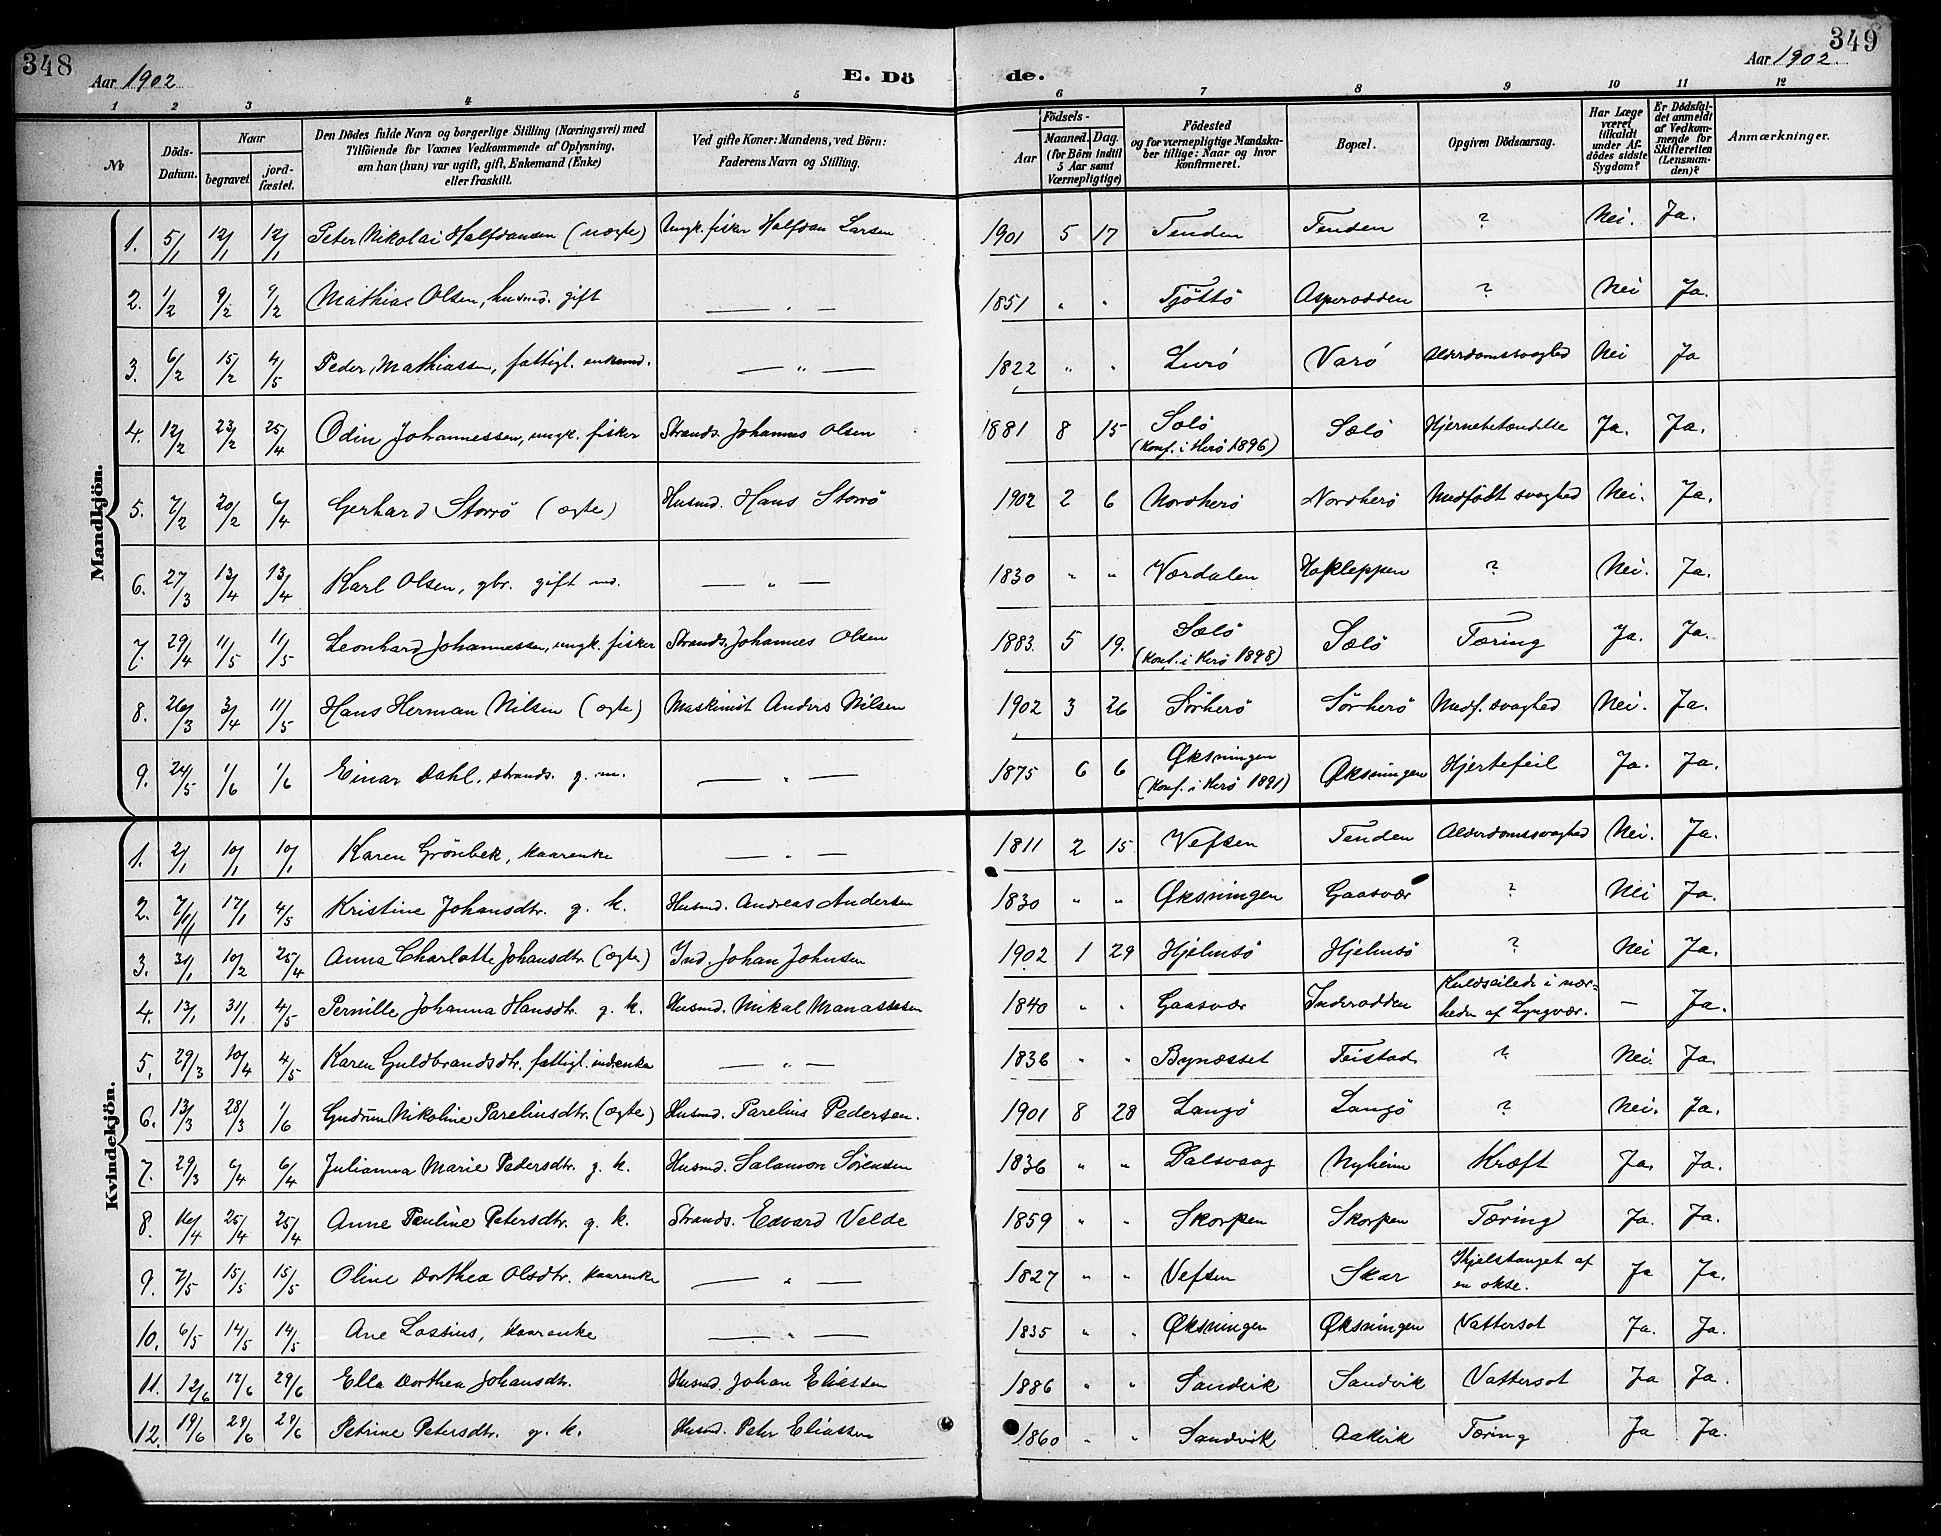 348
Aar 1902
E. Dö
de.
Aar 1902.
349
1 2 3 4 5 6 7 8 9 10 11 12
No
Döds-Datum.
Naar
begravet.
jordfæstet.
Den Dödes fulde Navn og borgerlige Stilling (Næringsvei) med Tilföiende for Voxnes Vedkommende af Oplysning, om han (hun) var ugift, gift, Enkemand (Enke) eller fraskilt.
Ved gifte Koner: Mandens, ved Börn: Faderens Navn og Stilling.
Födsels-
Aar
Maaned. Dag.
(for Börn indtil 5 Aar samt Værnepligtige)
Födested og for værnepligtige Mandskaber tillige: Naar og hvor konfirmeret.
Bopæl.
Opgiven Dödsaarsag.
Har Læge været tilkaldt under Afdödes sidste Sygdom?
Er Dödsfaldet anmeldt af Vedkommende for Skifteretten (Lensmanden)?
Anmærkninger.
Mandkjön.
1. 5/1 12/1 12/1 Peter Nikolai Halfdansen (uægte) Ungk. fisker Halfdan Larsen 1901 5 17 Tenden Tenden ? Nei. Ja.
2. 1/2 9/2 9/2 Mathias Olsen, husmd. gift — " — 1851 " " Tjöttö Asperodden ? Nei Ja.
3. 6/2 15/2 4/5 Peder Mathiassen, fattigl. enkemd. — " — 1822 " " Lurö Varö Alderdomssvaghed Nei Ja
4. 12/2 23/2 25/4 Odin Johannessen, ungk. fisker Strands. Johannes Olsen 1881 8 15 Sölö (Konf. i Herö 1896) Sælö Hjernebetændelse Ja. Ja.
5. 7/2 20/2 6/4 Gerhard Storrö (ægte) Husmd. Hans Storrö 1902 2 6 Nordherö Nordherö Medfödt svaghed Nei. Ja.
6. 27/3 13/4 13/4 Karl Olsen, gbr. gift md. — " — 1830 " " Værdalen Hofkleppen ? Nei. Ja.
7. 29/4 11/5 11/5 Leonhard Johannessen, ungk. fisker Strands. Johannes Olsen 1883. 5 19. Sælö (Konf. i Herö 1898) Sælö Tæring Ja. Ja.
8. 26/3 3/4 11/5 Hans Herman Nilsen (ægte) Maskinist Anders Nilsen 1902 3 26 Sörherö Sörherö Medf. svaghed Nei. Ja.
9. 24/5 1/6 1/6 Einar Dahl, strands. g. m. — " — 1875 6 6 Øksningen (Konf. i Herö 1891) Øksningen Hjertefeil Ja. Ja.
Kvindekjön.
1. 2/1 10/1 10/1 Karen Grönbek, kaarenke — " — 1811 2 15 Vefsen Tenden Alderdomssvaghed Nei. Ja.
2. 7/1 17/1 4/5 Kristine Johansdtr. g. k. Husmd. Andreas Andersen 1830 " " Øksningen Gaasvær ? Nei Ja.
3. 31/1 10/2 25/4 Anna Charlotte Johansdtr. (ægte) Ind. Johan Johnsen 1902 1 29 Hjelmsö Hjelmsö ? Nei Ja.
4. 13/1 31/1 4/5 Pernille Johanna Hansdtr. g. k. Husmd. Mikal Manassesen 1840 " " Gaasvær Inderodden Kuldseilede i nærheden af Lyngvær. — Ja.
5. 29/3 10/4 4/5 Karen Guldbrandsdtr. fattigl. indenke — " — 1836 " " Bynæsset Teistad ? Nei. Ja.
6. 13/3 28/3 1/6 Gudrun Nikoline Pareliusdtr. (ægte) Husmd. Parelius Pedersen. 1901 8 28 Langö Langö ? Nei. Ja.
7. 29/3 6/4 6/4 Julianna Marie Pedersdtr. g. k. Husmd. Salamon Sörensen 1836 " " Dalsvaag Nyheim Kræft Ja. Ja.
8. 16/4 25/4 25/4 Anne Pauline Petersdtr. g. k. Strands. Edvard Velde 1859 " " Skorpen Skorpen Tæring Ja. Ja.
9. 7/5 15/5 15/5 Oline Dorthea Olsdtr. kaarenke — " — 1827 " " Vefsen Skar Ihjelstanget af en okse. Ja Ja.
10. 6/5 14/5 14/5 Ane Lossius, kaarenke — " — 1835 " " Øksningen Øksningen Vattersot Ja. Ja.
11. 12/6 17/6 29/6 Ella Dorthea Johansdtr. Husmd. Johan Eliassen 1886 " " Sandvik Sandvik Vattersot Ja Ja.
12. 19/6 29/6 29/6 Petrine Petersdtr. g. k. Husmd. Peter Eliassen 1860 " " Sandvik Aakvik Tæring Ja Ja.